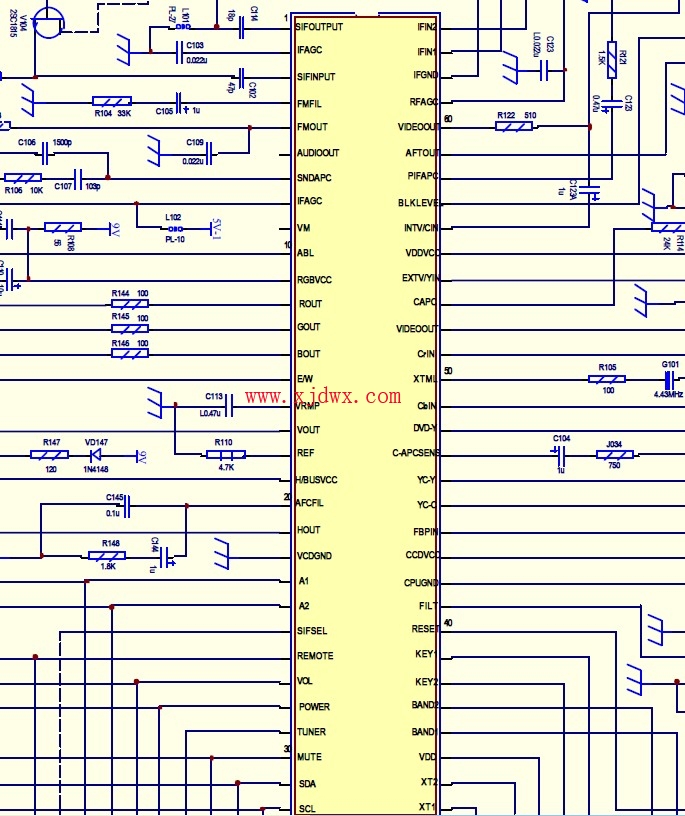 V104
2SC1815
L101
PL-2?
18p
C114
C103
0.022u
47p
C102
R104 33K
C105
1u
C106 1500p
C109
0.022u
R106 10K C107 103p
R108
9V
L102
PL-10
5V-1
R144 100
R145 100
R146 100
C113
L0.47u
R147
120
VD147
1N4148
9V
R110
4.7K
C145
0.1u
R148
1.8K
C144
1u
1
SIFOUTPUT
IFAGC
SIFINPUT
FMFIL
FMOUT
AUDIOOUT
SNDAPC
IFAGC
VM
10
ABL
RGBVCC
ROUT
GOUT
BOUT
E/W
VRMP
VOUT
REF
H/BUSVCC
20
AFCFIL
HOUT
VCDGND
A1
A2
SIFSEL
REMOTE
VOL
POWER
TUNER
30
MUTE
SDA
SCL
www.xjdwx.com
IFIN2
IFIN1
IFGND
RFAGC
60
VIDEOOUT
AFTOUT
PIFAPC
BLKLEVE
INTV/CIN
VDDVCC
EXTV/YIN
CAPC
VIDEOOUT
CrIN
50
XTML
CbIN
DVD-Y
C-APCSENS
YC-Y
YC-C
FBPIN
CCDVCC
CPUGND
FILT
40
RESET
KEY1
KEY2
BAND2
BAND1
VDD
XT2
XT1
C123
L0.022u
R121
1.5K
C123
0.47u
R122 510
C123A
1u
R114
24K
R105
100
G101
4.43MHz
C104
1u
J034
750